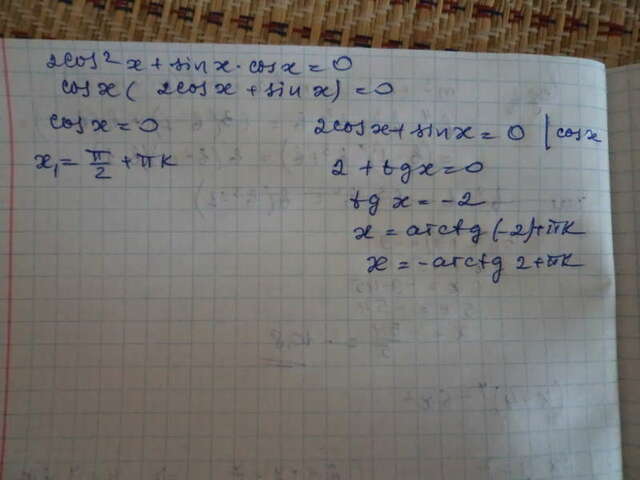 2cos² x + sin x · cos x = 0
cos x ( 2cos x + sin x) = 0
cos x = 0
x₁ = π/2 + πk
2cos x + sin x = 0 | cos x
2 + tg x = 0
tg x = -2
x = arctg (-2)+πk
x = -arctg 2+πk